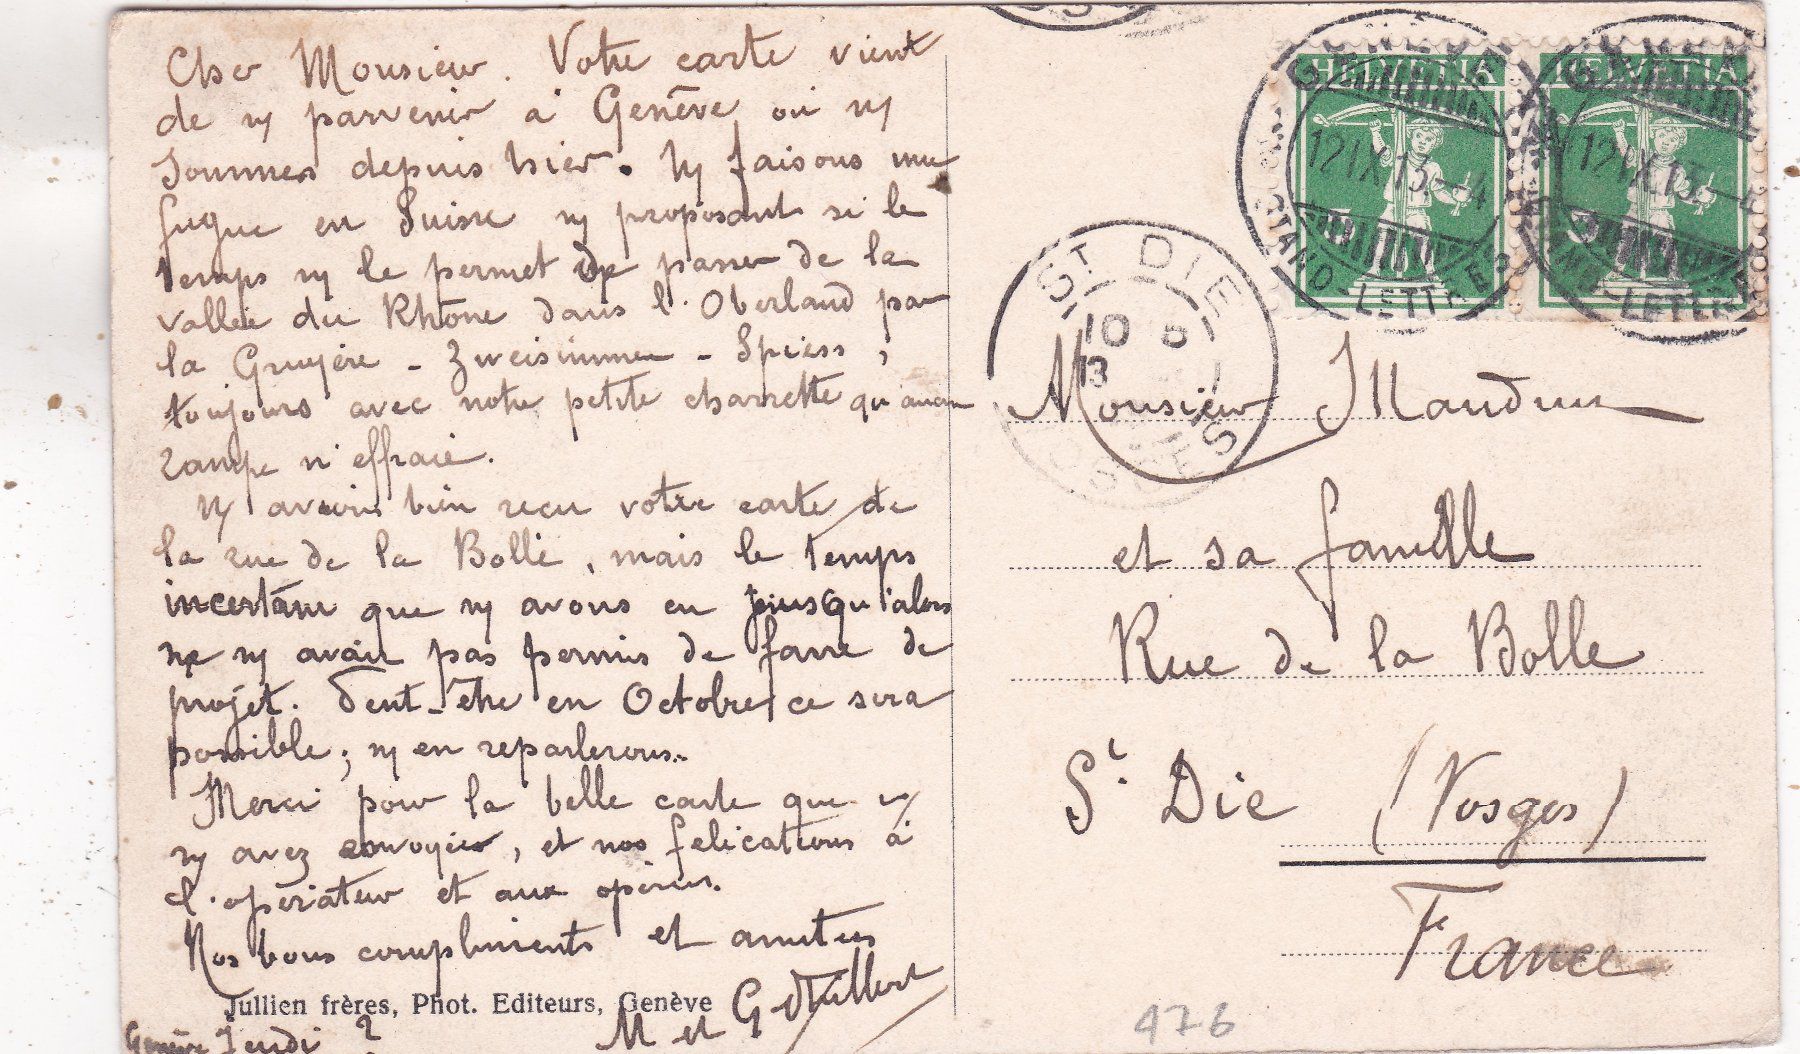 Cher Monsieur. Votre carte vient
de ns parvenir à Genève où ns
sommes depuis hier. Ns faisons une
fugue en Suisse ns proposant si le
temps ns le permet de passer de la
vallée du Rhône dans l'Oberland par
la Gruyère - Zweisimmen - Spiess,
toujours avec notre petite charrette qu'aucune
rampe n'effraie.
Ns avions bien reçu votre carte de
la rue de la Bolle, mais le temps
incertain que ns avons eu jusqu'alors
ne ns avait pas permis de faire de
projet. Peut-être en Octobre ce sera
possible; ns en reparlerons.
Merci pour la belle carte que vs
ns avez envoyée, et nos felicitations à
l'opérateur et aux opérés.
Nos bons compliments et amitiés
M et G
Jullien frères, Phot. Editeurs, Genève
Genève Jeudi
HELVETIA HELVETIA
GENÈVE
12 IX 13 - 4
STAND-LETTRES
GENÈVE
12 IX 13 - 4
STAND-LETTRES
ST DIE
10
13
VOSGES
Monsieur
et sa famille
Rue de la Bolle
St. Dié (Vosges)
France
476